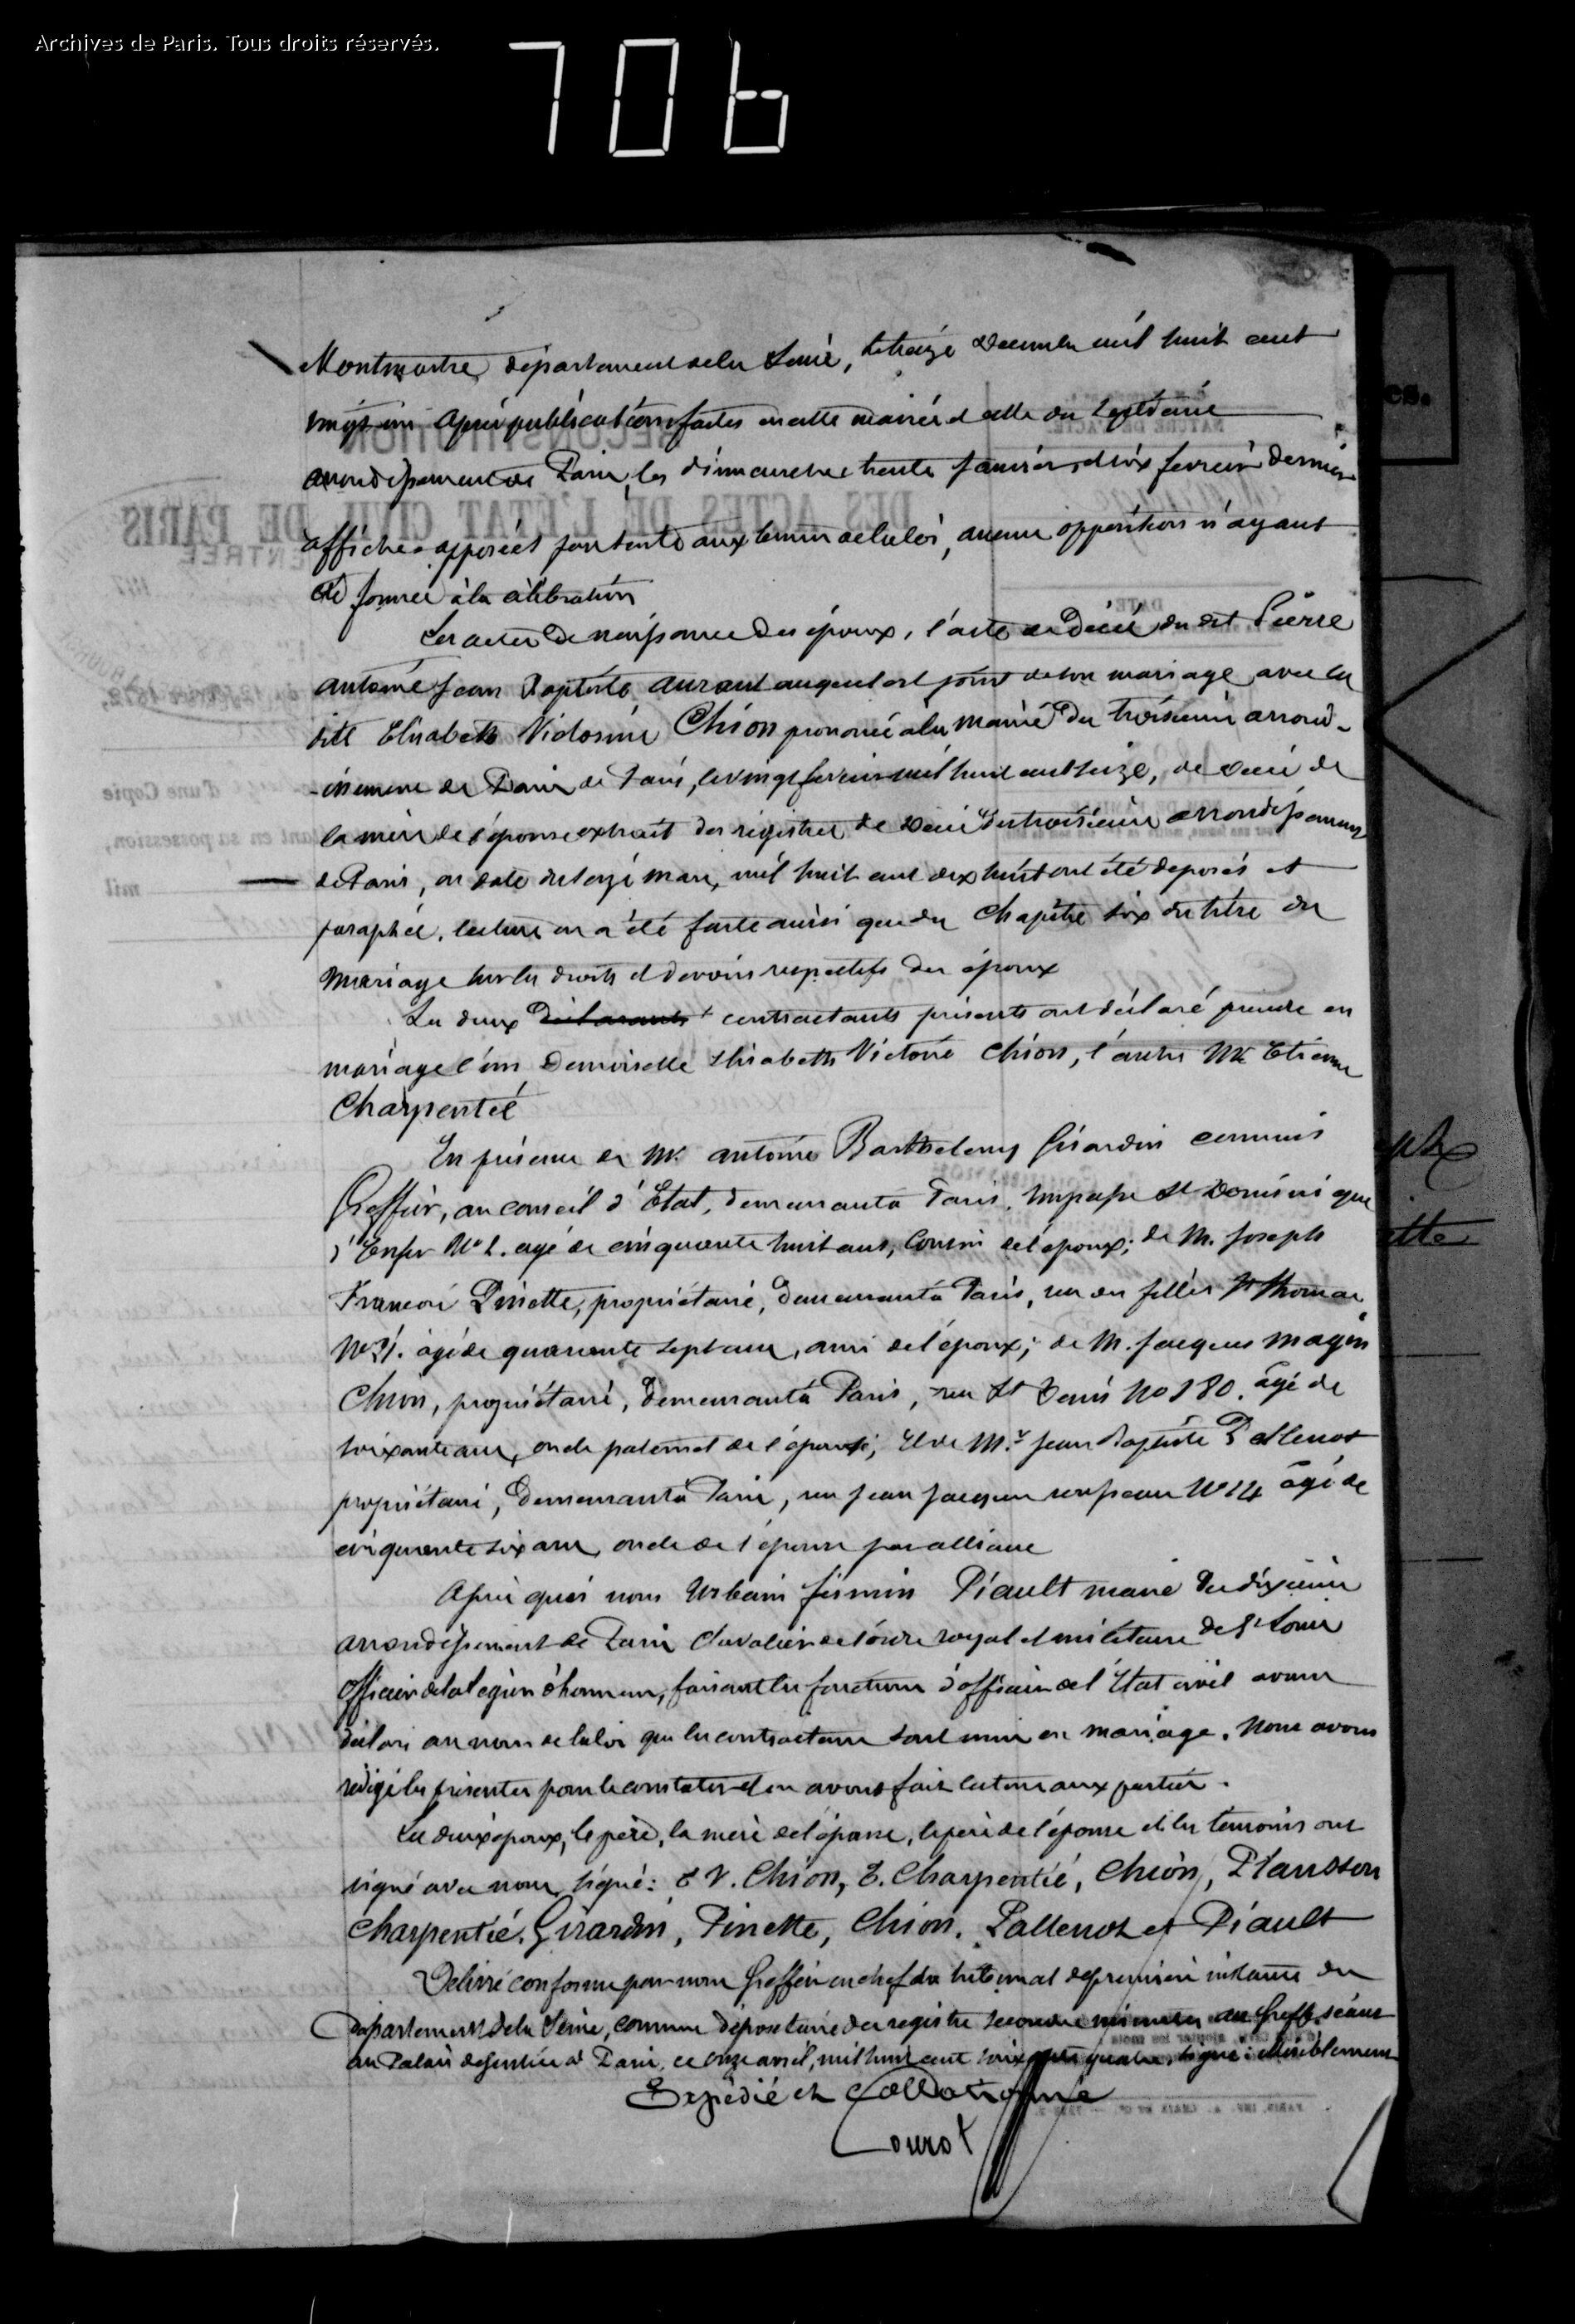 Archives de Paris. Tous droits réservés.
706
Montmartre, département de la Seine, le treize Décembre mil huit cent
vingt un Après publications faites en cette mairie et celle du Septième
arrondissement de Paris, les dimanches trente janvier et six fevrier dernier
affiches apposées partout aux termes de la loi, aucune opposition n'ayant
été formée à la célébration
Les actes de naissance des époux, l'acte de Décès du dit Pierre
antoine Jean Baptiste auquel est joint de son mariage avec la
dite Elisabeth Victorine Chion prononcé à la mairie du troisième arrond-
-issement de Paris de Paris, le vingt fevrier mil huit cent seize, de décès de
la mère de l'épouse extrait des registres de décès du troisième arrondissement
de Paris, en date du mars, mil huit cent dix huit ont été déposés et
paraphés, lecture en a été faite ainsi que du Chapitre six du titre du
mariage sur les droits et devoirs respectifs des époux
Les deux déclarants contractants présents ont déclaré prendre en
mariage l'un Demoiselle Elisabeth Victoire Chion, l'autre Mr Etienne
Charpentié
En présence de Mr. antoine Barthelemy Girardin commis
Greffier, au conseil d'Etat, demeurant à Paris, Impasse St Dominique
d'Enfer No 2. agé de cinquante huit ans, Cousin de l'époux; de M. Joseph
François Pinette, propriétaire, demeurant à Paris, rue des filles St Thomas
No 21. âgé de quarante sept ans, ami de l'époux; de M. Jacques Magin
Chion, propriétaire, demeurant à Paris, rue St Denis No 180. âgé de
soixante ans, oncle paternel de l'épouse; Et de Mr. Jean Baptiste Pallenot
propriétaire, demeurant à Paris, rue Jean Jacques rousseau No 14 âgé de
cinquante six ans, oncle de l'épouse par alliance
Après quoi nous Urbain firmin Piault maire du dixième
arrondissement de Paris Chevalier de l'ordre royal et militaire de St Louis
officier de la légion d'honneur, faisant les fonctions d'officier de l'Etat civil avons
déclaré au nom de la loi que les contractans sont unis en mariage. Nous avons
rédigé les présentes pour le constater et en avons fait lecture aux parties.
Les deux époux, le père, la mère de l'époux, le père de l'épouse et les témoins ont
signé avec nous, signé: E V. Chion, E. Charpentié, Chion, Plansson
Charpentié. Girardin, Pinette, Chion. Pallenot et Piault
Délivré conforme par nous Greffier en chef du tribunal de première instance du
département de la Seine, comme dépositaire des registres seconde minutes au Greffe séant
au Palais de justice à Paris, ce onze avril, mil huit cent soixante quatre, signé:
Expédié et Collationné
Courot